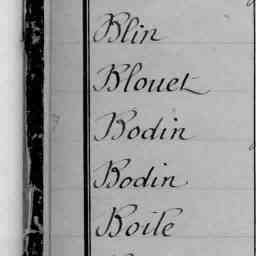 Blin
Blouet
Bodin
Bodin
Boile